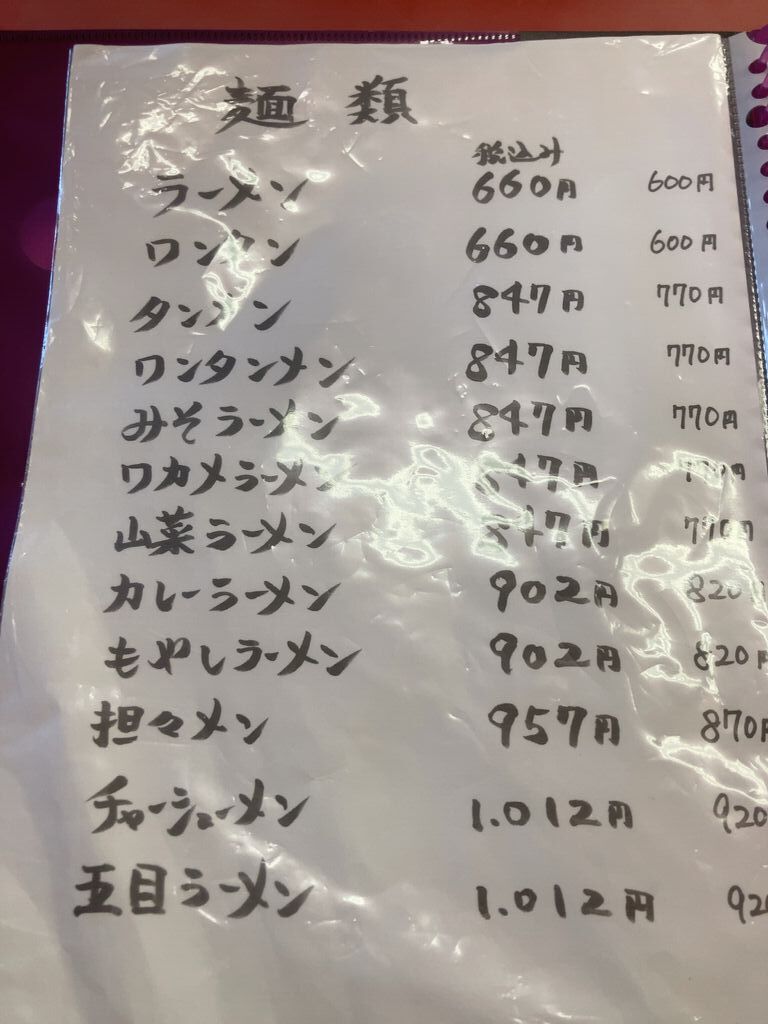 麺 類
税込み
ラーメン 660円 600円
ワンタン 660円 600円
タンメン 847円 770円
ワンタンメン 847円 770円
みそラーメン 847円 770円
ワカメラーメン 847円 770円
山菜ラーメン 847円 770円
カレーラーメン 902円 820円
もやしラーメン 902円 820円
担々メン 957円 870円
チャーシューメン 1.012円 920
五目ラーメン 1.012円 920